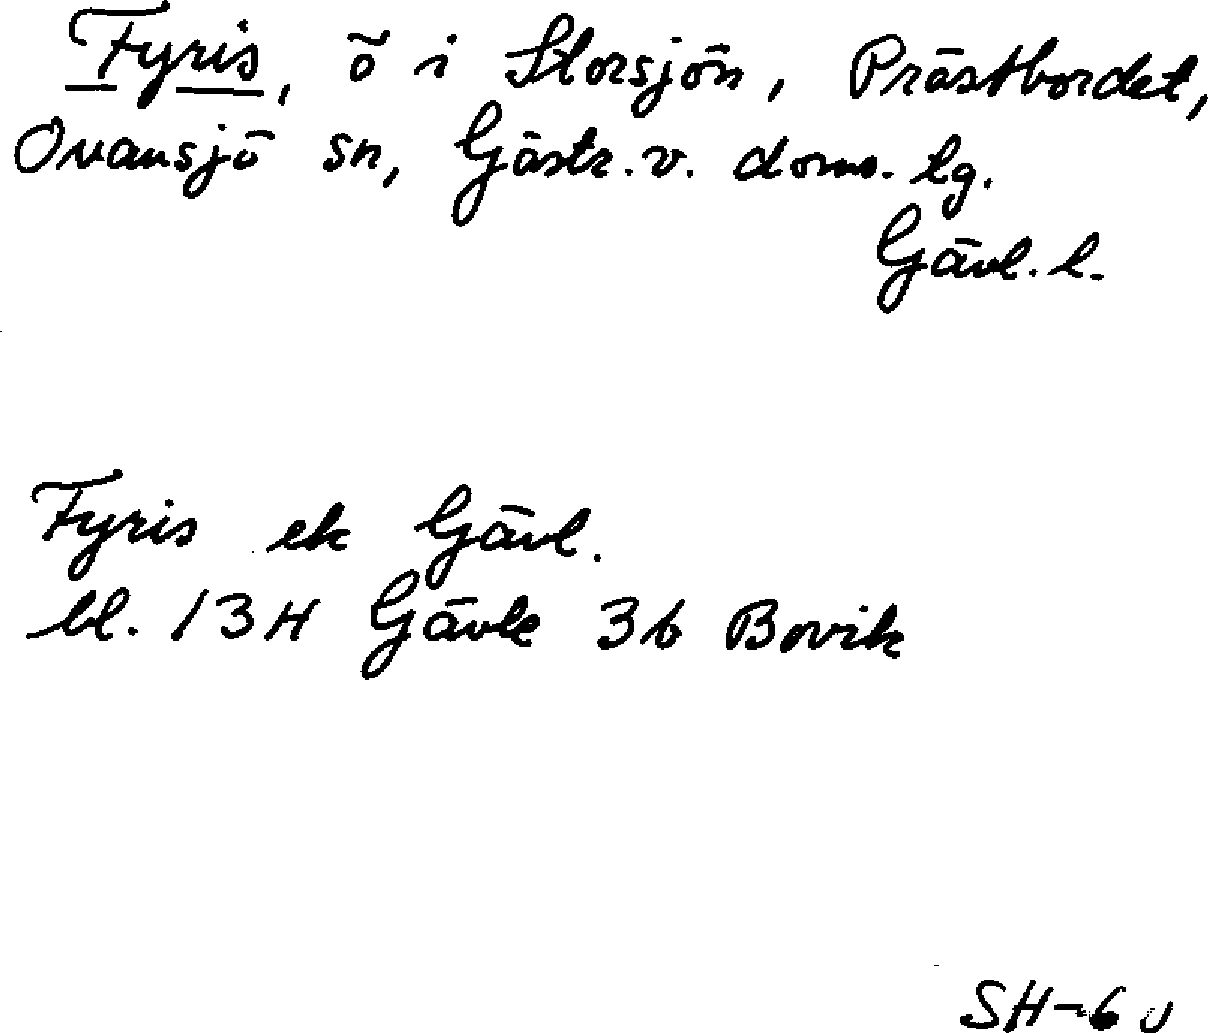 Fyris, ö i Storsjön, Prästbordet,
Ovansjö sn, Gästr. v. doms. lg.
Gävl. l.
Fyris ek Gävl.
bl. 13H Gävle 3b Bovik